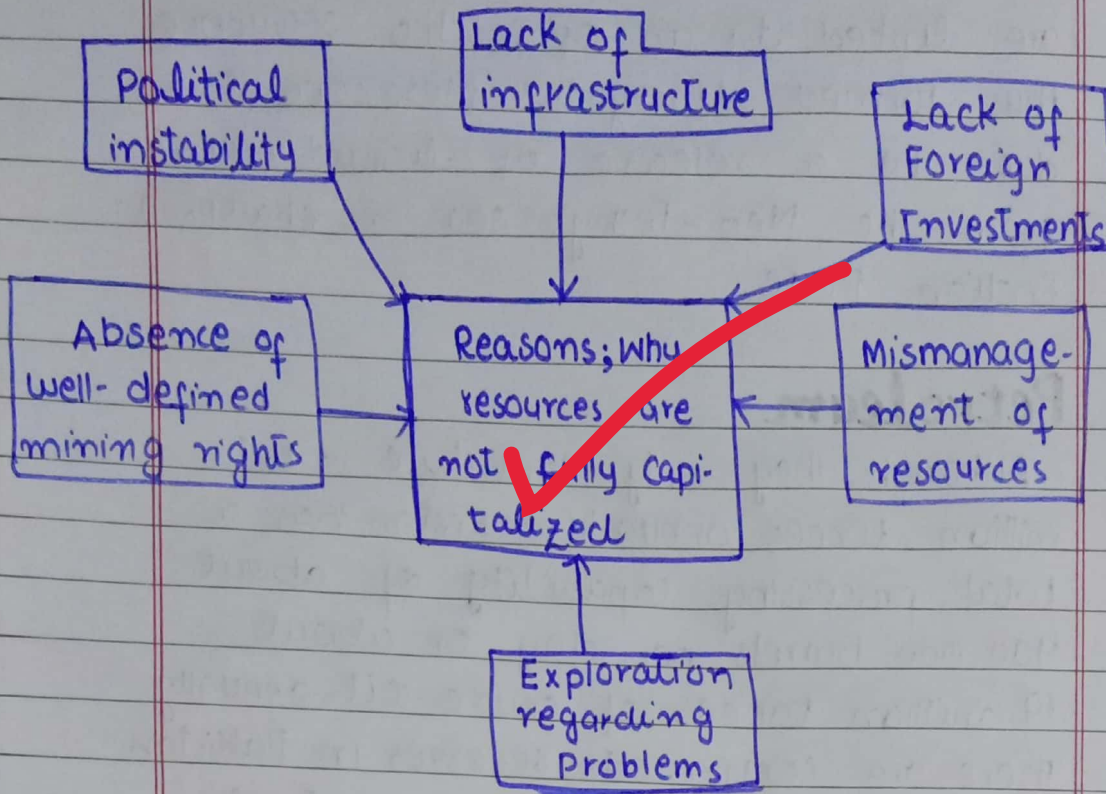 Political
instability
Lack of
infrastructure
Lack of
Foreign
Investments
Absence of
well-defined
mining rights
Reasons; why
resources are
not fully capi-
talized
Mismanage-
ment of
resources
Exploration
regarding
Problems